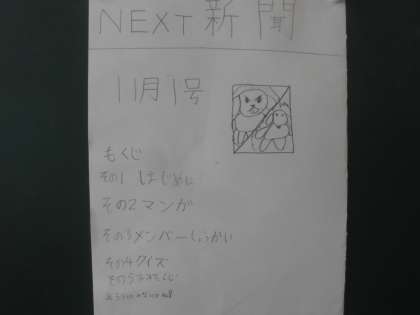 NEXT新聞
11月1号
もくじ
その1 はじめに
その2マンガ
その3メンバーしょうかい
その4クイズ
その5